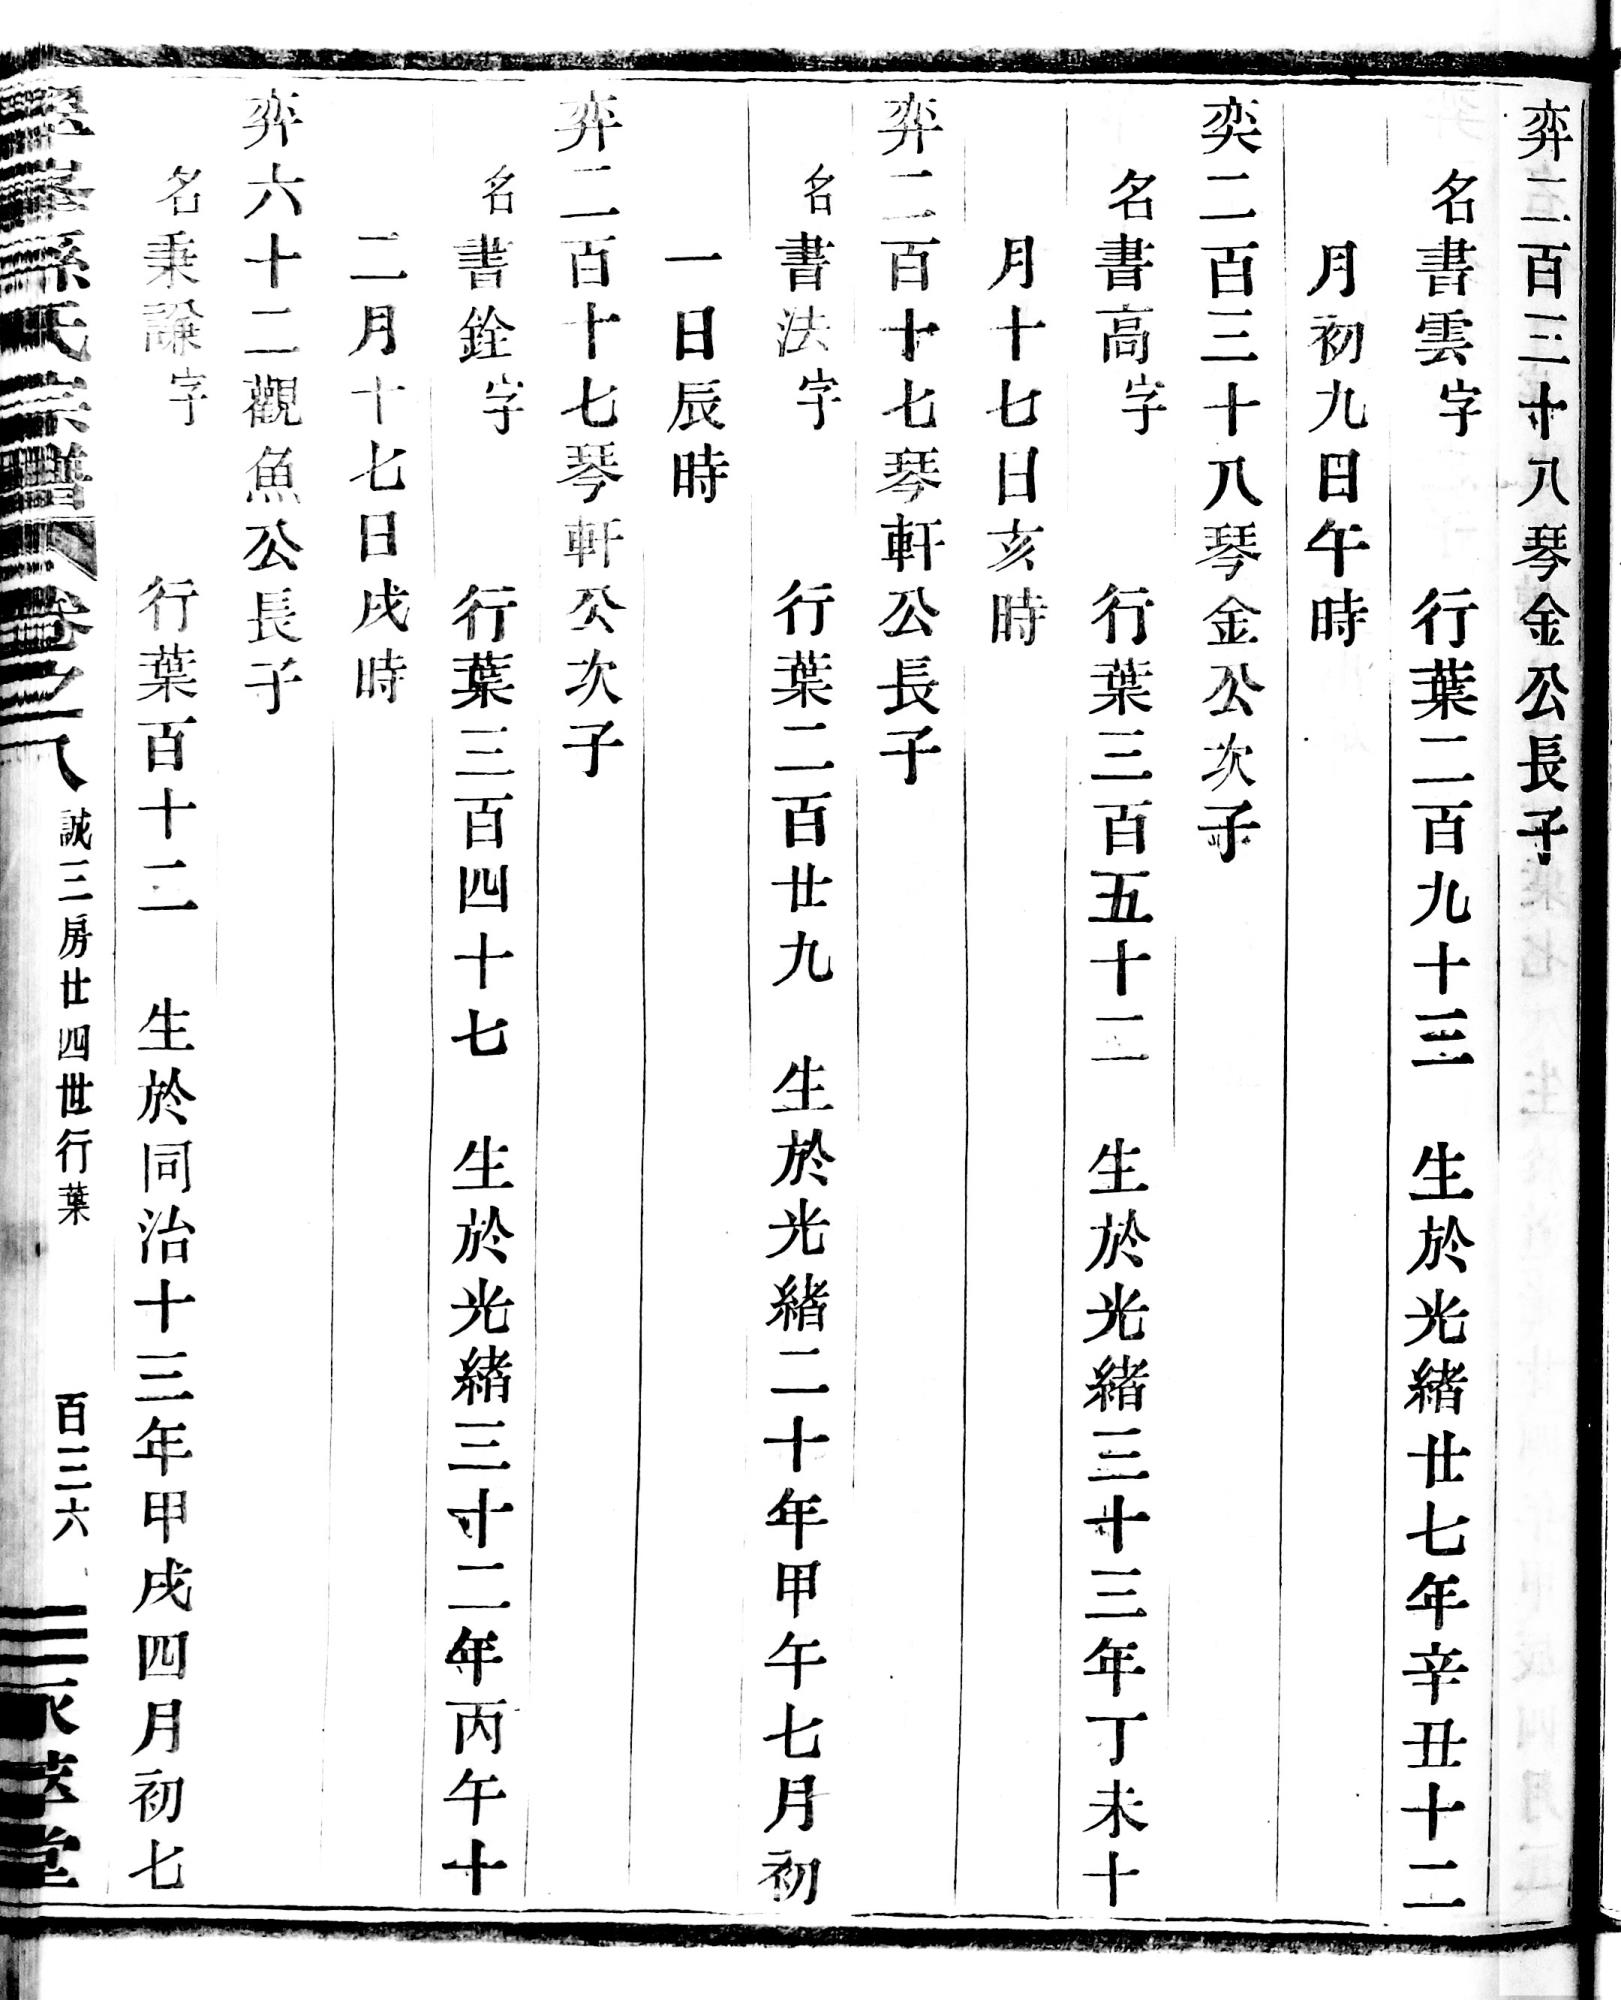 弈二百三十八琴金公長子
名書雲字 行葉二百九十三 生於光緒廿七年辛丑十二
月初九日午時
奕二百三十八琴金公次子
名書高字 行葉三百五十二 生於光緒三十三年丁未十
月十七日亥時
弈二百十七琴軒公長子
名書法字 行葉二百廿九 生於光緒二十年甲午七月初
一日辰時
弈二百十七琴軒公次子
名書銓字 行葉三百四十七 生於光緒三十二年丙午十
二月十七日戌時
弈六十二觀魚公長子
名秉謙字 行葉百十二 生於同治十三年甲戌四月初七
孫氏宗譜 卷之八 誠三房廿四世行葉 百三六 萃堂